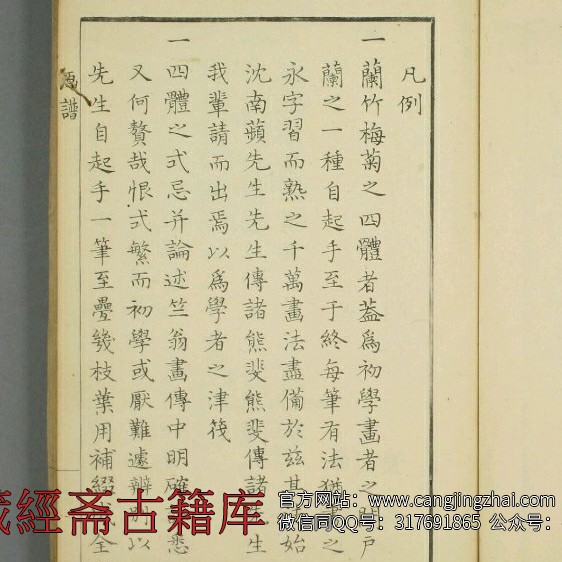 凡例
一蘭竹梅菊之四體者蓋爲初學畫者之門戶
蘭之一種自起手至于終每筆有法猶之
永字習而熟之千萬畫法盡備於玆其始
沈南蘋先生先生傳諸熊斐熊斐傳諸生
我輩請而出焉以爲學者之津筏
一四體之式忌并論述竺翁畫傳中明確悉
又何贅哉恨式繁而初學或厭難遽辨以
先生自起手一筆至疊幾枝葉用補綴全
畫譜
藏經斋古籍库
官方网站：www.cangjingzhai.com
微信同QQ号：317691865 公众号：